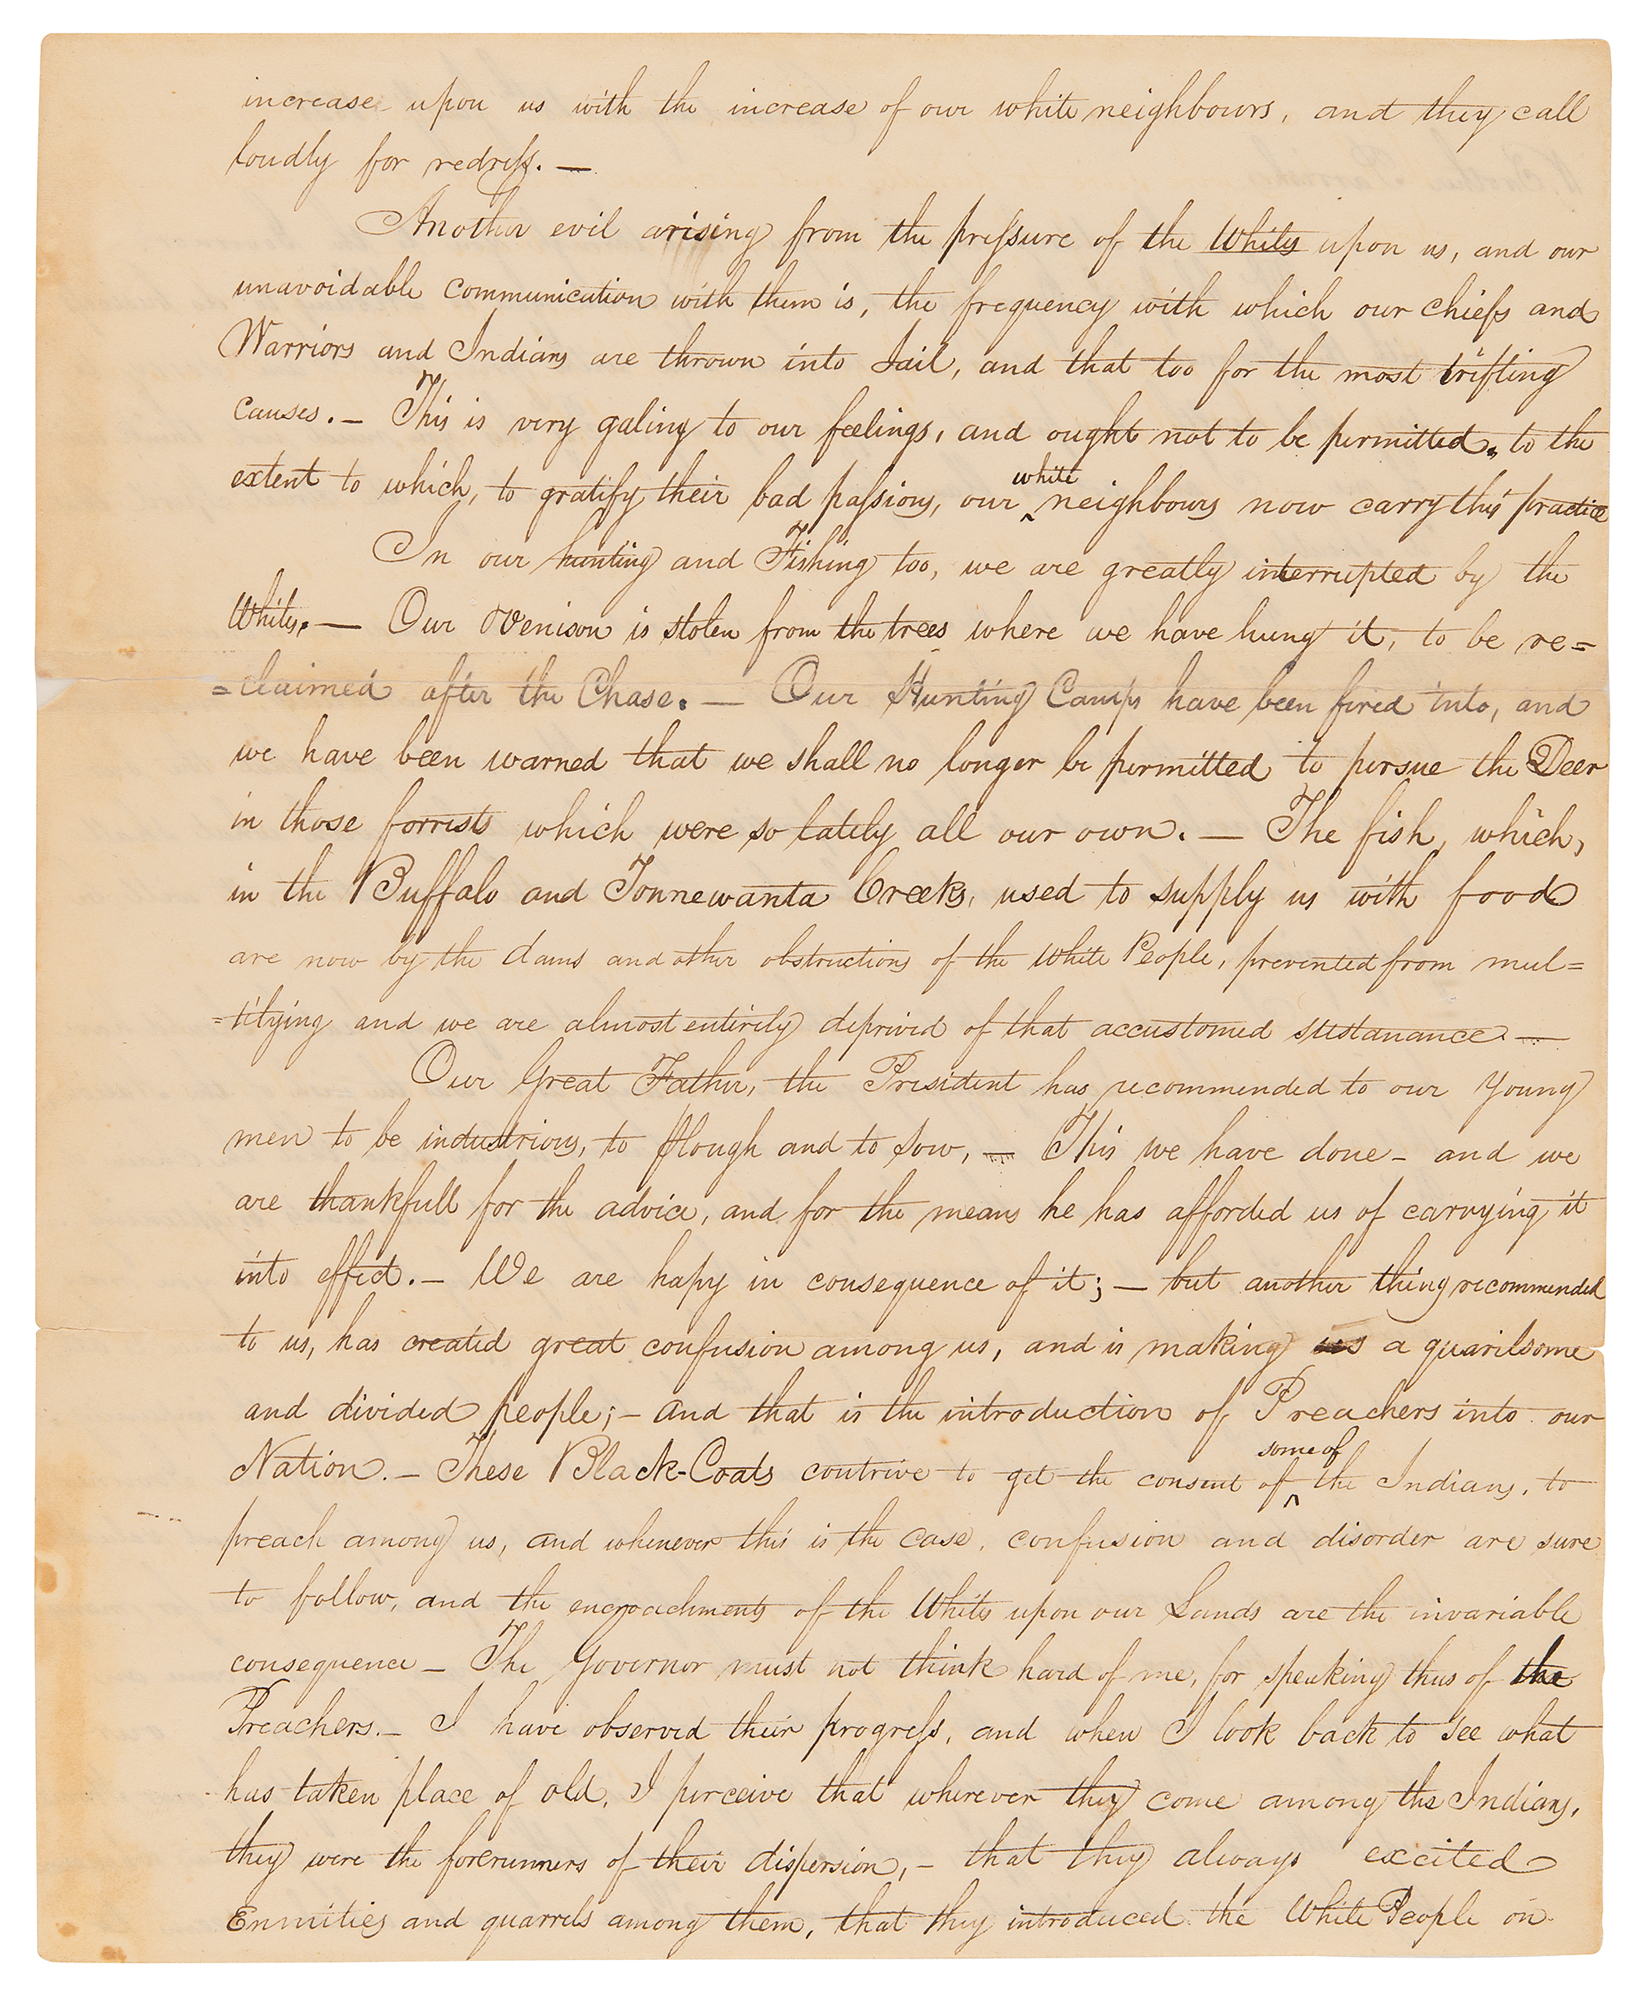 increase upon us with the increase of our white neighbours, and they call
loudly for redress. —
Another evil arising from the pressure of the Whites upon us, and our
unavoidable communication with them is, the frequency with which our chiefs and
Warriors and Indians are thrown into Jail, and that too for the most trifling
causes. — This is very galing to our feelings, and ought not to be permitted, to the
extent to which, to gratify their bad passions, our white neighbours now carry this practice
In our hunting and Fishing too, we are greatly interrupted by the
Whites. — Our Venison is stolen from the trees where we have hung it, to be re=
=claimed after the Chase. — Our Hunting Camps have been fired into, and
we have been warned that we shall no longer be permitted to persue the Deer
in those forrists which were so lately all our own. — The fish, which,
in the Buffalo and Tonnewanta Creeks, used to supply us with food
are now by the dams and other obstructions of the White People, prevented from mul=
=tilying and we are almost entirely deprived of that accustomed sustanance. —
Our Great Father, the President has recommended to our Young
men to be industrious, to plough and to sow, — This we have done — and we
are thankfull for the advice, and for the means he has afforded us of carrying it
into effect. — We are hapy in consequence of it; — but another thing recommended
to us, has created great confusion among us, and is making us a quarilsome
and divided people; — and that is the introduction of Preachers into our
Nation. — These Black-Coats contrive to get the consent of some of the Indians, to
preach among us, and whenever this is the case, confusion and disorder are sure
to follow, and the encroachments of the Whites upon our Lands are the invariable
consequence — The Governor must not think hard of me, for speaking thus of the
Preachers. — I have observed their progress, and when I look back to see what
has taken place of old, I perceive that wherever they come among the Indians,
they were the forerunners of their dispersion, — that they always excited
Enmities and quarrels among them, that they introduced the White People on